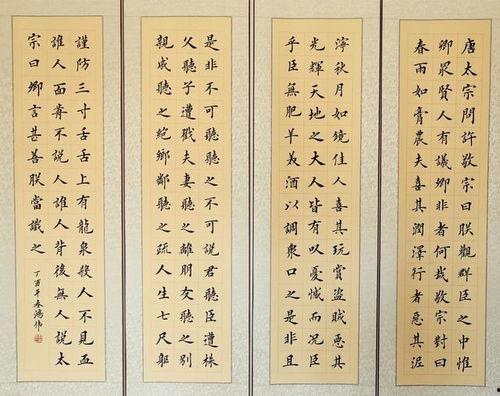 唐太宗問許敬宗曰朕觀群臣之中惟
卿最賢人有議卿非者何哉敬宗對曰
春雨如膏農夫喜其潤澤行者惡其泥
濘秋月如鏡佳人喜其玩賞盜賊惡其
光輝天地之大人皆有以憂憾而況臣
乎臣無肥羊美酒以調眾口之是非且
是非不可聽聽之不可說君聽臣遭株
父聽子遭戮夫妻聽之離朋友聽之別
親戚聽之絕鄉鄰聽之疏人生七尺軀
謹防三寸舌舌上有龍泉殺人不見血
誰人面前不說人誰人背後無人說太
宗曰卿言甚善朕當識之
丁酉年春鴻偉